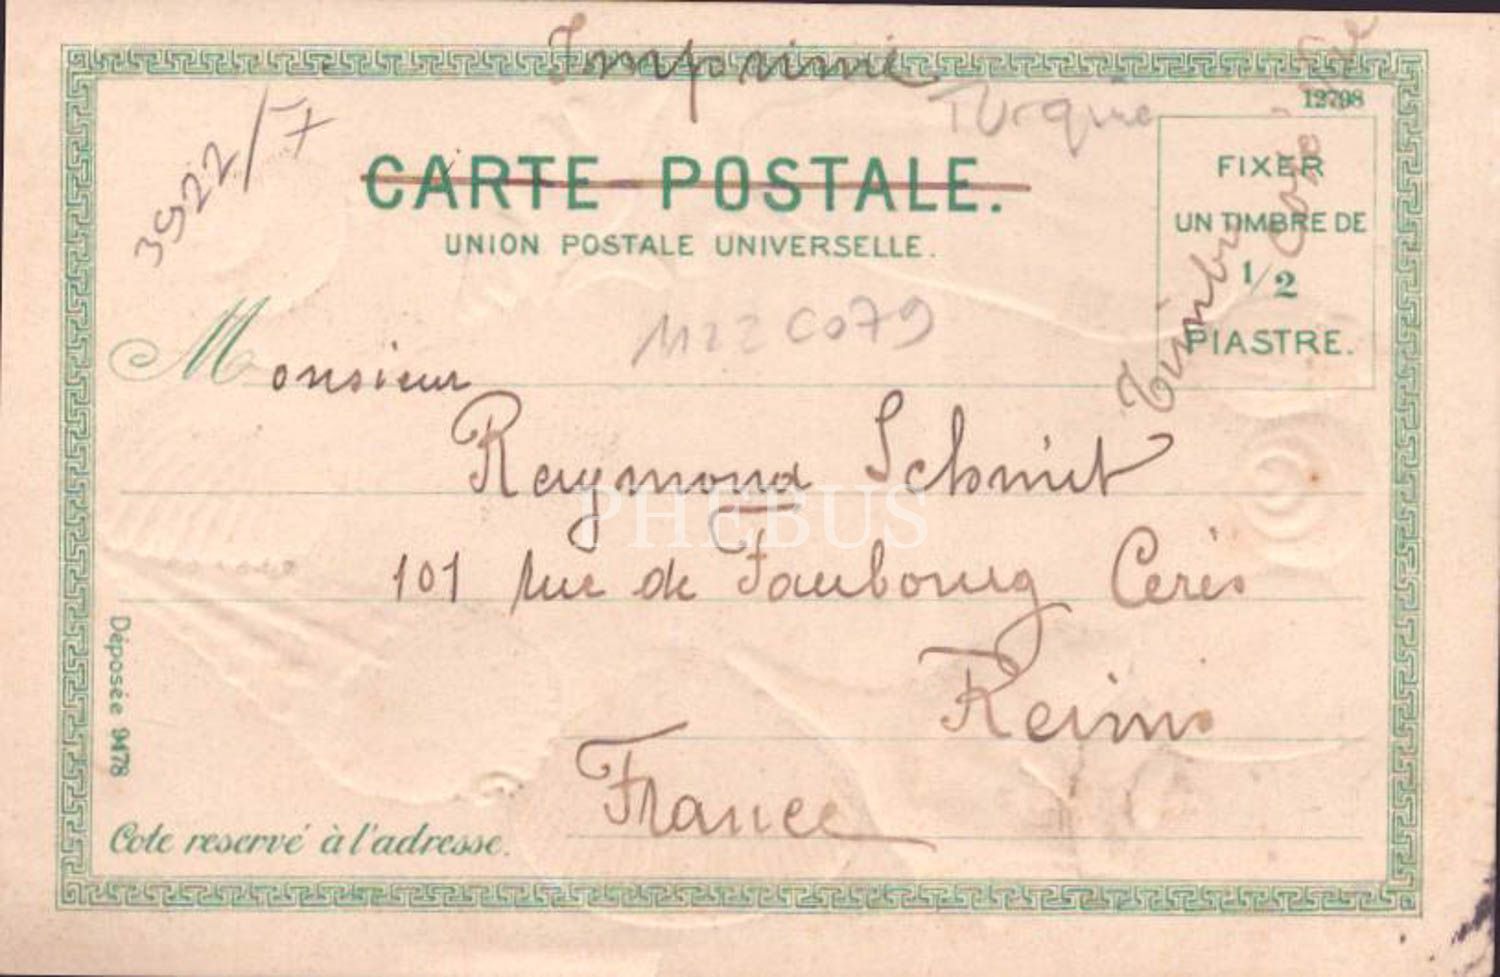 Imprimé
Turquie
12798
3922/7
CARTE POSTALE.
UNION POSTALE UNIVERSELLE.
FIXER
UN TIMBRE DE
1/2
PIASTRE.
Timbre côté vue
M22C079
Monsieur
Raymond Schmit
PHEBUS
101 rue de Faubourg Cerès
Reims
France
Déposée 9478
Cote reservé à l'adresse.